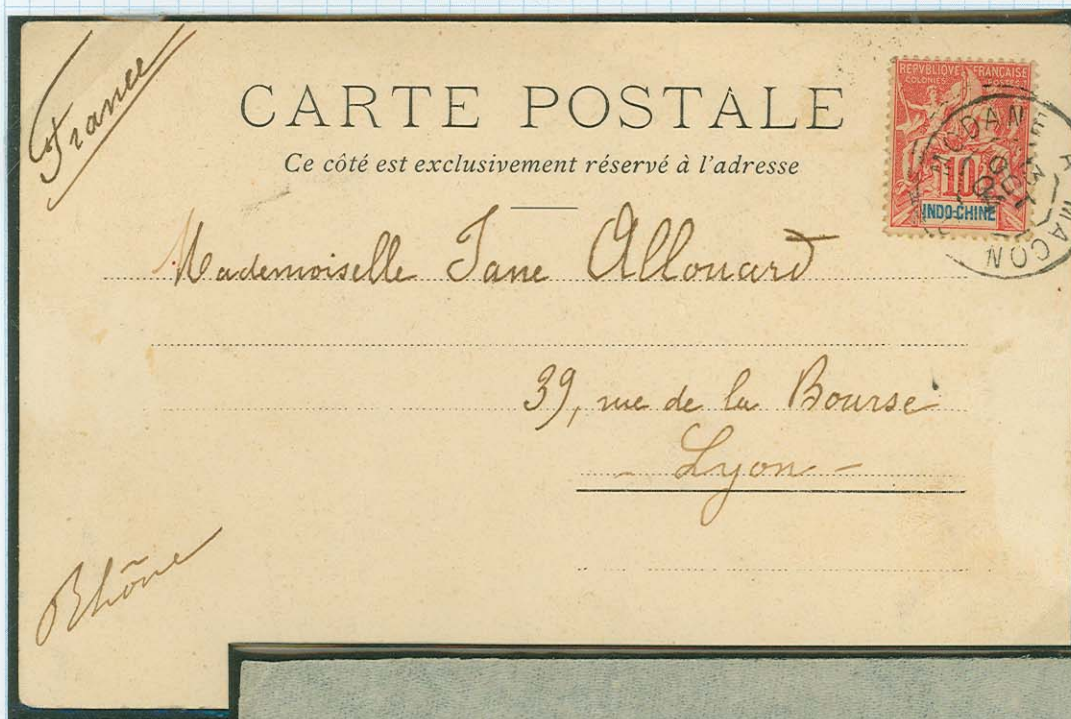 France
CARTE POSTALE
Ce côté est exclusivement réservé à l'adresse
REPVBLIQVE FRANÇAISE
COLONIES POSTES
10
INDO-CHINE
MODAN
A MACON
Mademoiselle Jane Allouard
39, rue de la Bourse
Lyon
Rhône